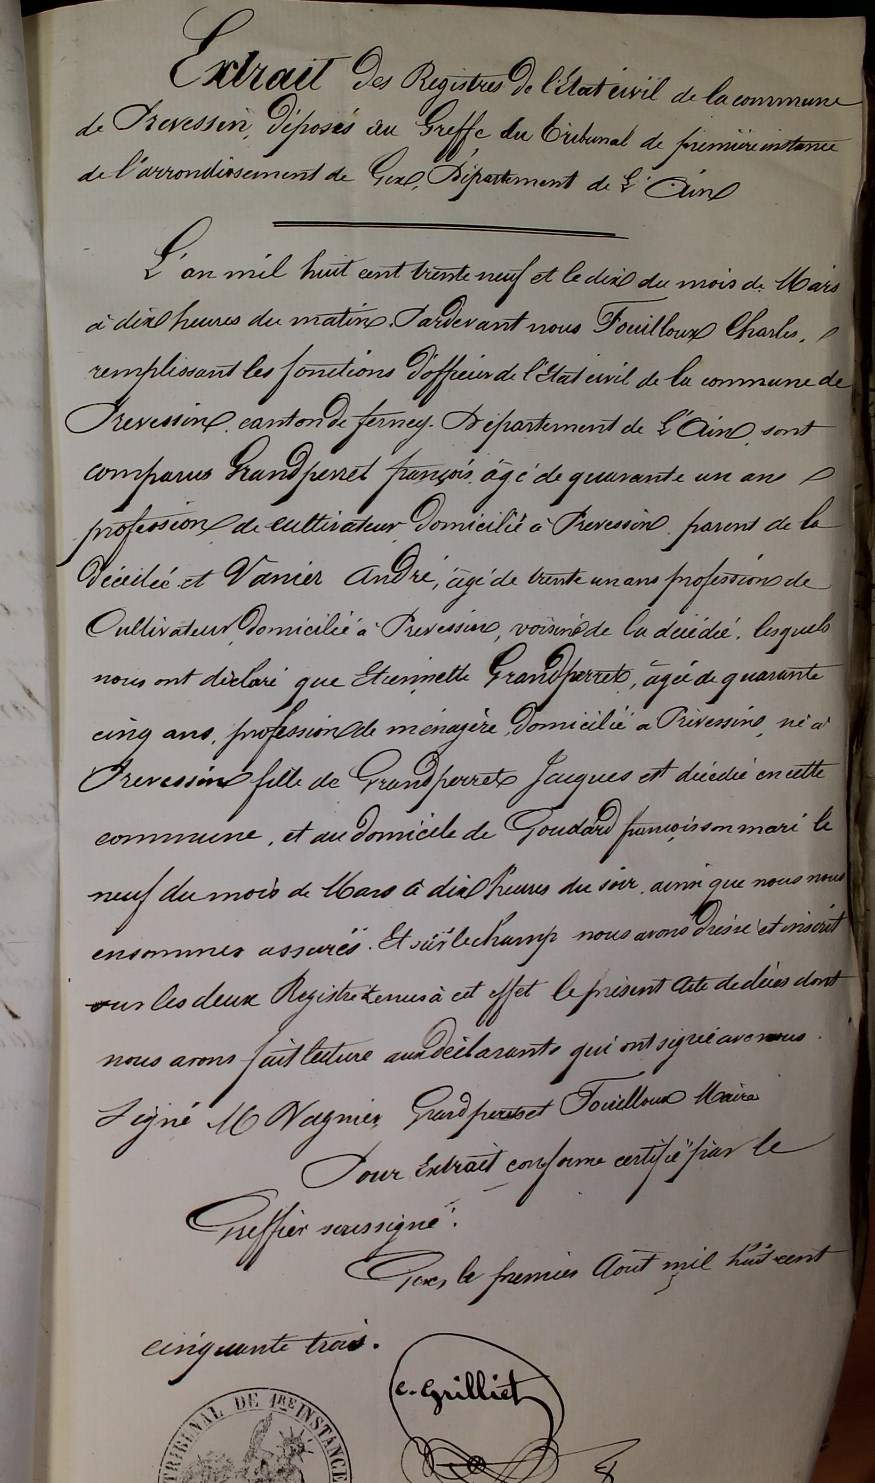 Extrait des Registres de l'Etat civil de la commune
de Prevessin, déposés au Greffe du Tribunal de première instance
de l'arrondissement de Gex, Département de L'Ain
L'an mil huit cent trente neuf et le dix du mois de Mars
à dix heures du matin. Pardevant nous Fouilloux Charles,
remplissant les fonctions d'officier de l'Etat civil de la commune de
Prevessin canton de ferney. Département de L'Ain sont
comparus Grandperret françois âgé de quarante un ans
profession de cultivateur domicilié à Prevessin parent de la
décédée et Vanier André, âgé de trente un ans profession de
Cultivateur domicilié à Prevessin, voisin de la décédé, lesquels
nous ont déclaré que Etiennette Grandperret, âgée de quarante
cinq ans, profession de ménagère, domicilié a Prévessin, né à
Prevessin fille de Grandperret Jacques est décédé en cette
commune, et au domicile de Goudard françois son mari le
neuf du mois de Mars à dix heures du soir, ainsi que nous nous
en sommes assurés. Et sur le champ nous avons dressé et inscrit
sur les deux Registre tenus à cet effet le présent Acte de décès dont
nous avons fait lecture aux déclarants qui ont signé avec nous.
Signé M Vagnier, Grandperret Fouilloux Maire
Pour Extrait conforme certifié par le
Greffier soussigné.
Gex, le premier Août mil huit cent
cinquante trois.
C. Grilliet
TRIBUNAL DE 1RE INSTANCE